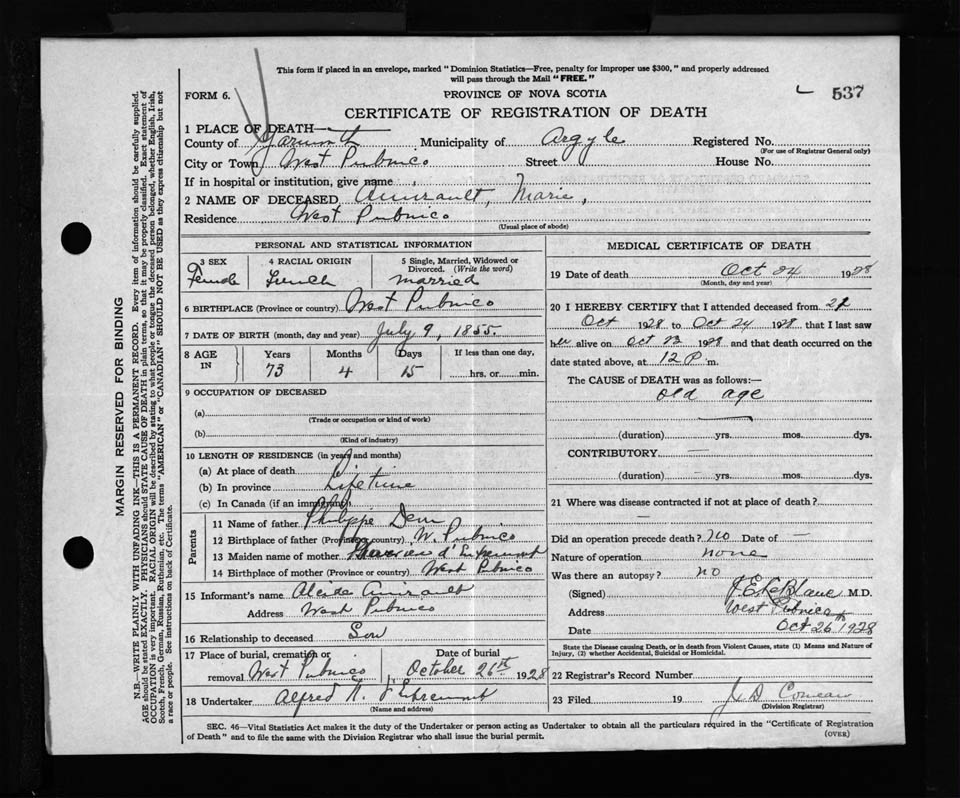 This form if placed in an envelope, marked "Dominion Statistics—Free, penalty for improper use $300," and properly addressed
will pass through the Mail "FREE."
FORM 6.
PROVINCE OF NOVA SCOTIA
537
CERTIFICATE OF REGISTRATION OF DEATH
1 PLACE OF DEATH—
County of Yarmouth Municipality of Argyle Registered No.
(For use of Registrar General only)
City or Town West Pubnico Street House No.
If in hospital or institution, give name
2 NAME OF DECEASED Amirault, Marie,
Residence West Pubnico
(Usual place of abode)
PERSONAL AND STATISTICAL INFORMATION
3 SEX 4 RACIAL ORIGIN 5 Single, Married, Widowed or
Divorced. (Write the word)
Female French married
6 BIRTHPLACE (Province or country) West Pubnico
7 DATE OF BIRTH (month, day and year) July 9, 1855
8 AGE IN Years Months Days If less than one day,
73 4 15 hrs. or min.
9 OCCUPATION OF DECEASED
(a)
(Trade or occupation or kind of work)
(b)
(Kind of industry)
10 LENGTH OF RESIDENCE (in years and months)
(a) At place of death
(b) In province Lifetime
(c) In Canada (if an immigrant)
Parents
11 Name of father Philippe
12 Birthplace of father (Province or country) W. Pubnico
13 Maiden name of mother d'Entremont
14 Birthplace of mother (Province or country) West Pubnico
15 Informant's name Amirault
Address West Pubnico
16 Relationship to deceased Son
17 Place of burial, cremation or Date of burial
removal West Pubnico October 26th 1928
18 Undertaker Alfred d'Entremont
(Name and address)
MEDICAL CERTIFICATE OF DEATH
19 Date of death Oct 24 1928
(Month, day and year)
20 I HEREBY CERTIFY that I attended deceased from 22
Oct 1928 to Oct 24 1928 that I last saw
her alive on Oct 23 1928 and that death occurred on the
date stated above, at 12 P m.
The CAUSE of DEATH was as follows:—
old age
(duration) yrs. mos. dys.
CONTRIBUTORY —
(duration) — yrs. mos. dys.
21 Where was disease contracted if not at place of death? —
—
Did an operation precede death? no Date of —
Nature of operation none
Was there an autopsy? no
(Signed) J E LeBlanc M.D.
Address West Pubnico
Date Oct 26th 1928
State the Disease causing Death, or in death from Violent Causes, state (1) Means and Nature of
Injury, (2) whether Accidental, Suicidal or Homicidal.
22 Registrar's Record Number
23 Filed 19 D Comeau
(Division Registrar)
SEC. 46—Vital Statistics Act makes it the duty of the Undertaker or person acting as Undertaker to obtain all the particulars required in the "Certificate of Registration
of Death" and to file the same with the Division Registrar who shall issue the burial permit.
(OVER)
MARGIN RESERVED FOR BINDING
N.B.—WRITE PLAINLY WITH UNFADING INK—THIS IS A PERMANENT RECORD. Every item of information should be carefully supplied.
AGE should be stated EXACTLY. PHYSICIANS should STATE CAUSE OF DEATH in plain terms, so that it may be properly classified. Exact statement of
OCCUPATION is very important. RACIAL ORIGIN will be described by stating to what people or tongue the deceased person belonged, whether English, Irish,
Scotch, French, German, Russian, Ruthenian, etc. The terms "AMERICAN" or "CANADIAN" SHOULD NOT BE USED as they express citizenship but not
a race or people. See instructions on back of Certificate.